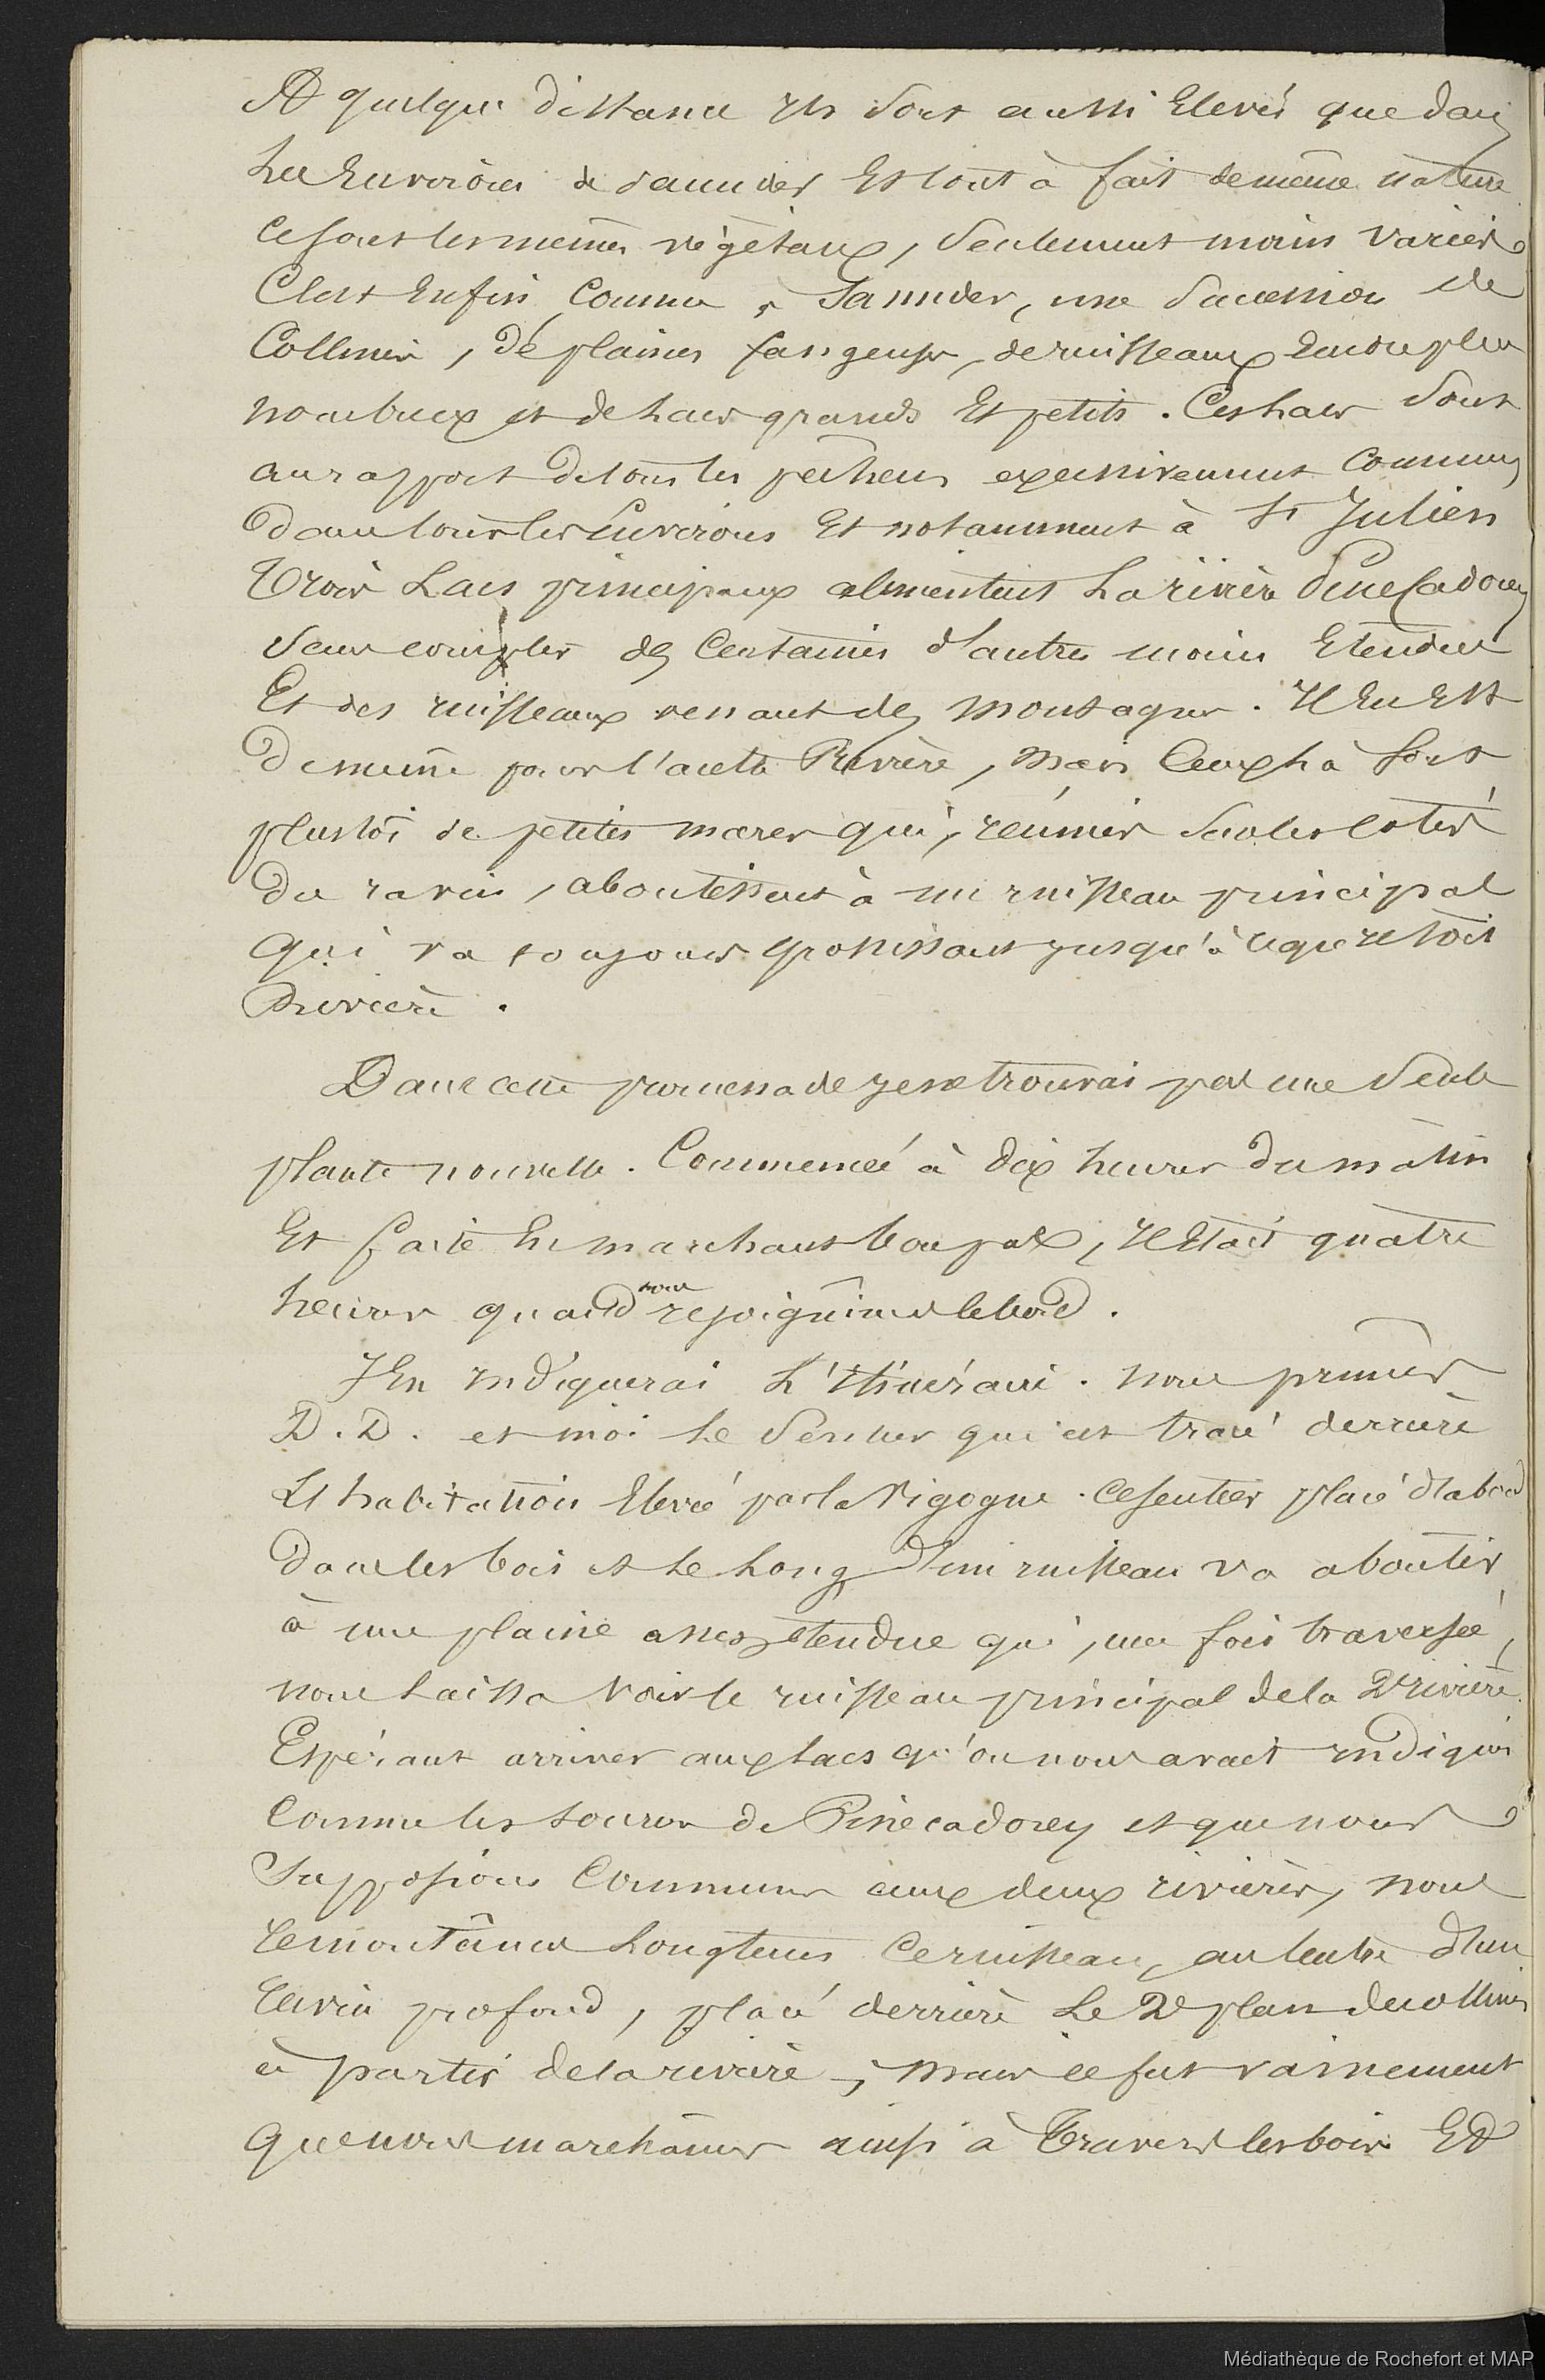 A quelque distance ils sont aussi Elevés que dans
les Environs de saunders Et tout à fait de même nature
ce sont les memes végétaux, seulement moins variés.
C'est Enfin, comme à Saunders, une succession de
Collines, de plaines fangeuses, de ruisseaux Encore plus
nombreux et de lacs grands Et petits. Ces lacs sont
au rapport de tous les pêcheurs excessivement communs
dans tous les Environs Et notamment à St Julien
Trois Lacs principaux alimentent la rivière Pinecadorey
sans compter des Centaines d'autres moins Etendus
Et des ruisseaux venant des montagnes. Il En Est
de même pour l'autre Rivière, mais Ceux là sont
plustôt de petites mares qui, réunies sur les cotés
du ravin, aboutissent à un ruisseau principal
qui va toujours grossissant jusqu'à ce qu'il soit
Rivière.
Dans cette promenade je ne trouvai pas une seule
plante nouvelle. Commencée à dix heures du matin
Et faite En marchant bon pas, il Etait quatre
heures quand nous rejoignîmes le bord.
J'En indiquerai L'itinéraire. nous primes
D. D. et moi le sentier qui est tracé derrière
L'habitation Elevée par la Vigogne. Ce sentier placé d'abord
dans les bois et le long d'un ruisseau va aboutir
à une plaine assez etendue qui, une fois traversée,
nous laissa voir le ruisseau principal de la 2e rivière.
Espérant arriver aux lacs qu'on nous avait indiqués
Comme les sources de Pinecadorey et que nous
supposions Communes aux deux rivières, nous
remontâmes longtems ce ruisseau, au centre d'un
ravin profond, placé derrière Le 2e plan de collines
à partir de la rivière, mais ce fut vainement
que nous marchâmes ainsi à Travers les bois Et
Médiathèque de Rochefort et MAP